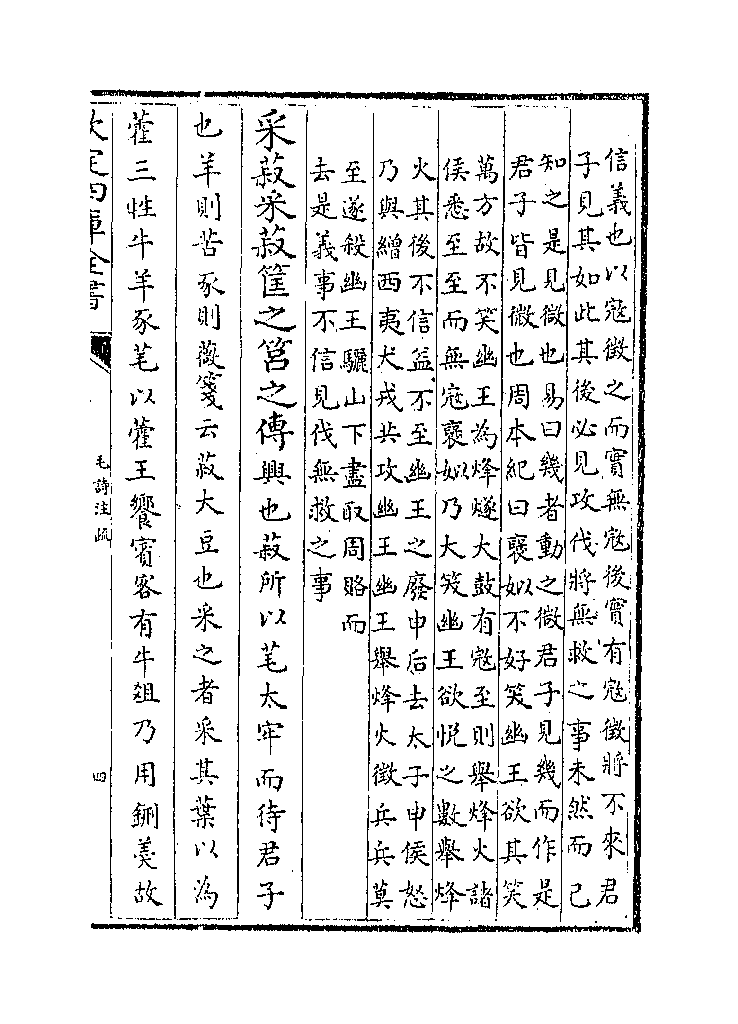 信義也以寇徵之而實無寇後實有寇徵將不來君
子見其如此其後必見攻伐將無救之事未然而已
知之是見微也易曰幾者動之微君子見幾而作是
君子皆見微也周本紀曰褒姒不好笑幽王欲其笑
萬方故不笑幽王為烽燧大鼓有寇至則舉烽火諸
侯悉至至而無寇褒姒乃大笑幽王欲悅之數舉烽
火其後不信益不至幽王之廢申后去太子申侯怒
乃與繒西夷犬戎共攻幽王幽王舉烽火徵兵兵莫
至遂殺幽王驪山下盡取周賂而
去是義事不信見伐無救之事
采菽采菽筐之筥之傳興也菽所以芼太牢而待君子
也羊則苦豕則薇箋云菽大豆也采之者采其葉以為
藿三牲牛羊豕芼以藿王饗賓客有牛俎乃用鉶羹故
欽定四庫全書
毛詩注疏
四